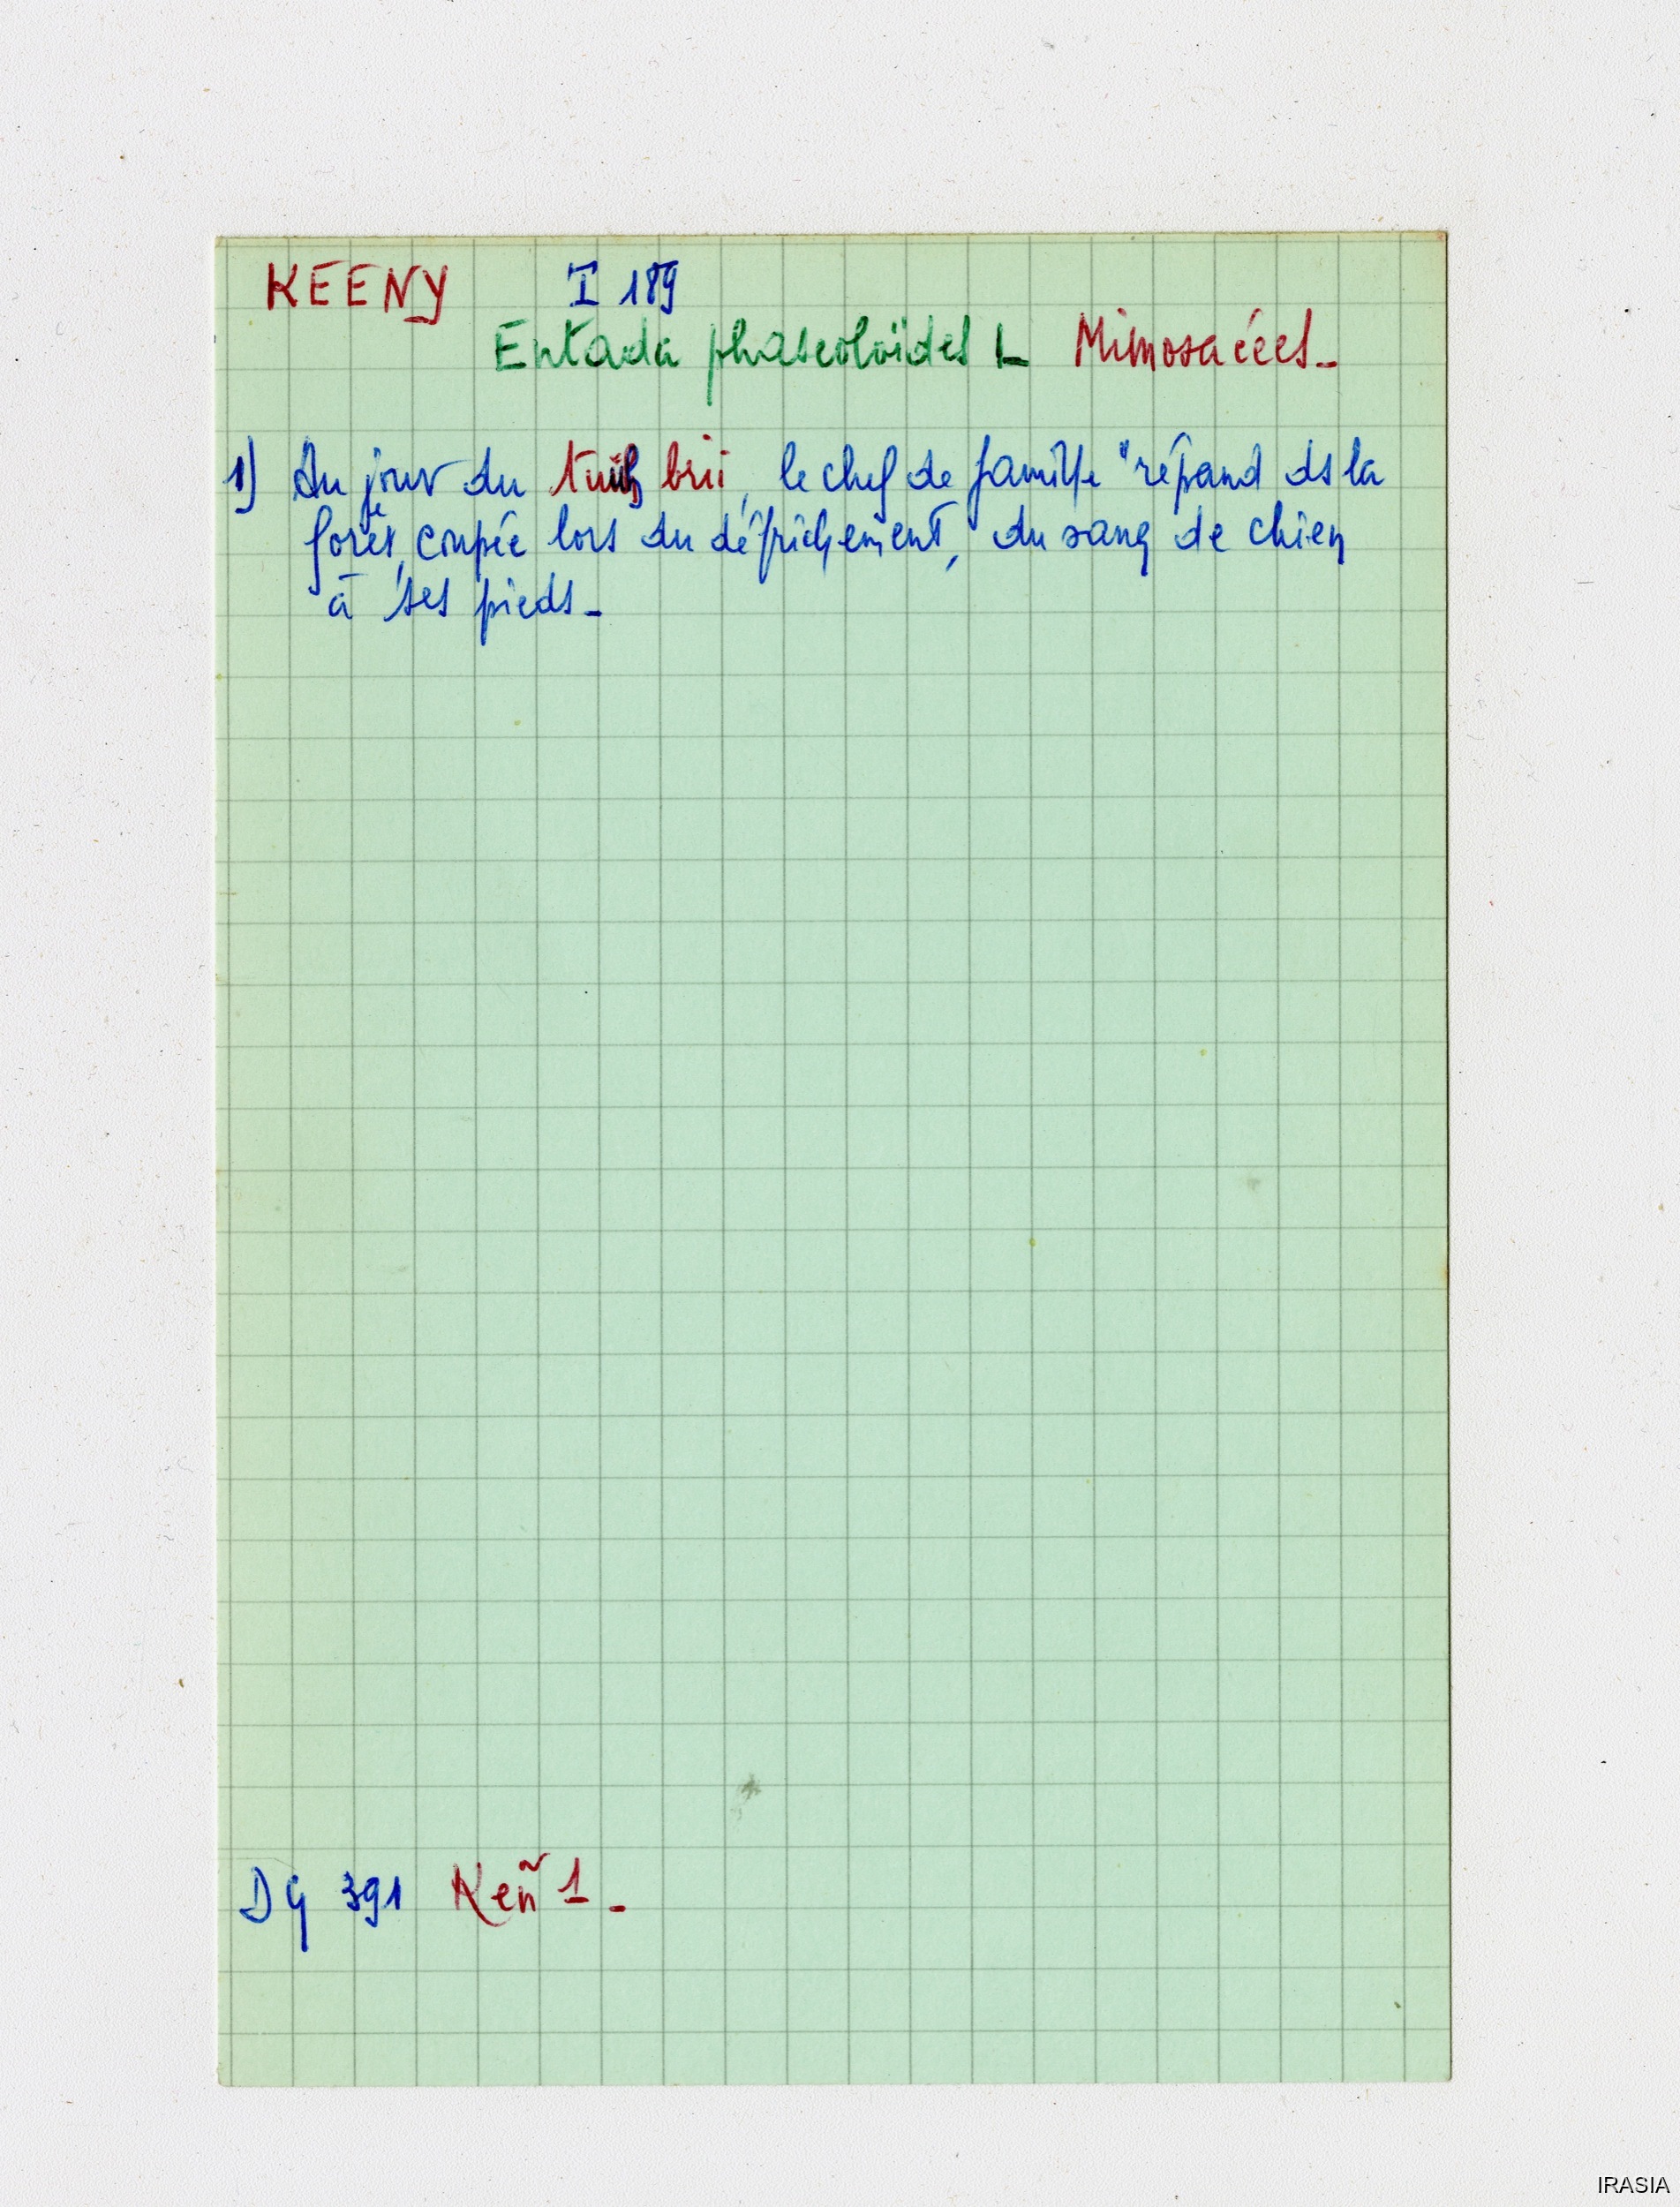 KEENY I 189
Entada phaseoloïdes L Mimosacées_
1) Au jour du tuih brii, le chef de famille "répand ds la
forêt, coupée lors du défrichement, du sang de chien
à ses pieds_
DG 391 Keñ 1_
IRASIA